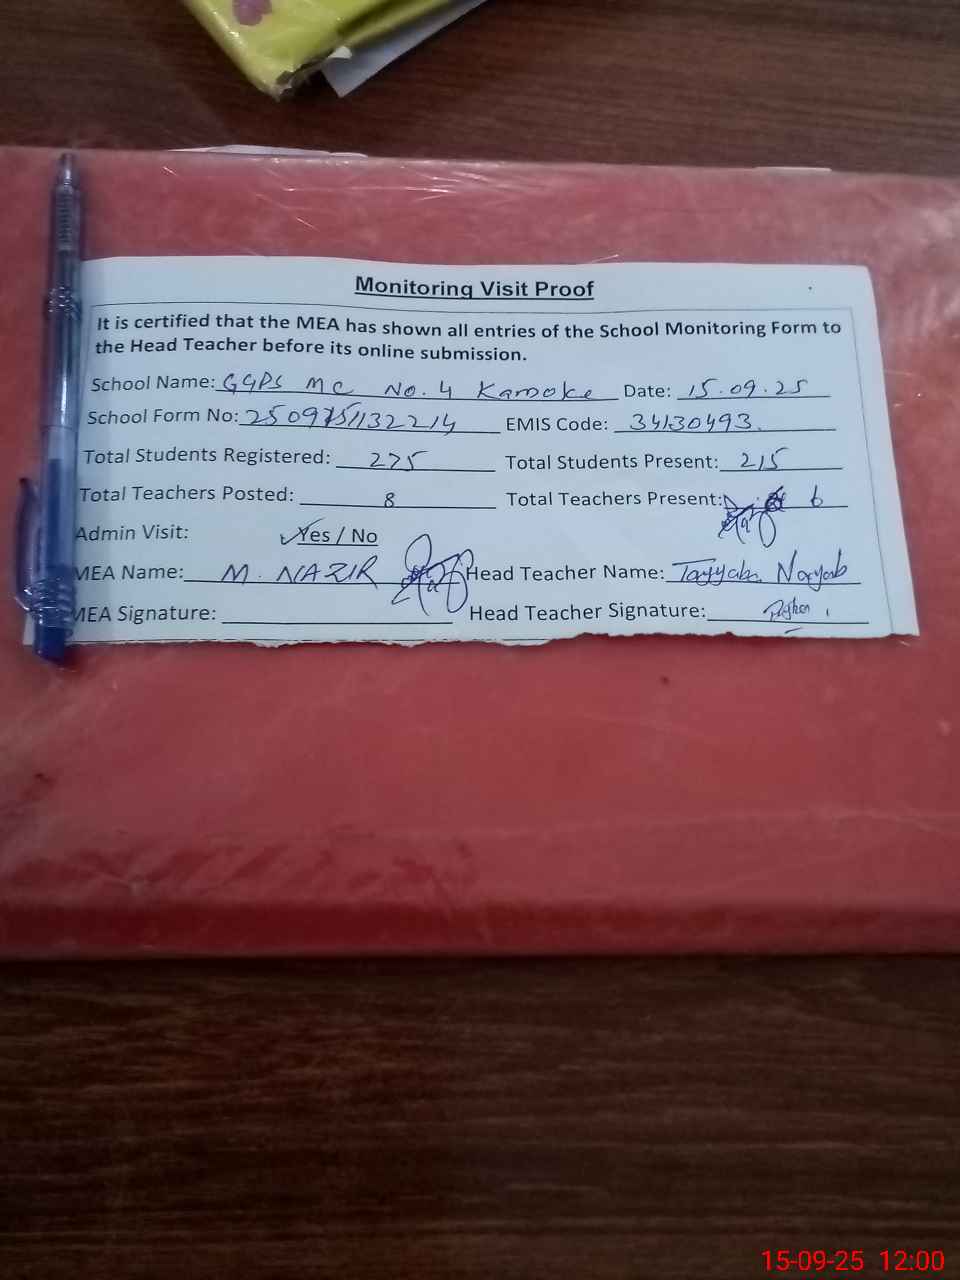 Monitoring Visit Proof
It is certified that the MEA has shown all entries of the School Monitoring Form to
the Head Teacher before its online submission.
School Name: GGPS MC No. 4 Kamoke Date: 15.09.25
School Form No: EMIS Code: 34130493.
Total Students Registered: 275 Total Students Present: 215
Total Teachers Posted: 8 Total Teachers Present: 6
Admin Visit: Yes / No
MEA Name: M. NAZIR Head Teacher Name: Tayyaba
MEA Signature: Head Teacher Signature:
15-09-25 12:00